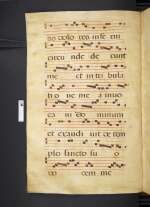 dolores infe rni
circu nde de runt
me et in tribula
tio ne me a inuo
ca ui do minum
et exaudi uit de tem
plo sancto su o
uo cem me